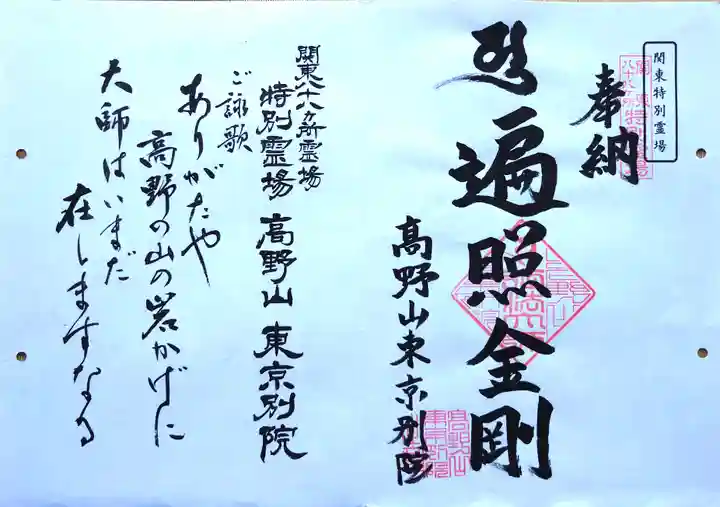 関東特別霊場
奉納
遍照金剛
高野山東京別院
関東八十八ヵ所霊場
特別霊場 高野山 東京別院
ご詠歌
ありがたや
高野の山の岩かげに
大師はいまだ
在しますなる